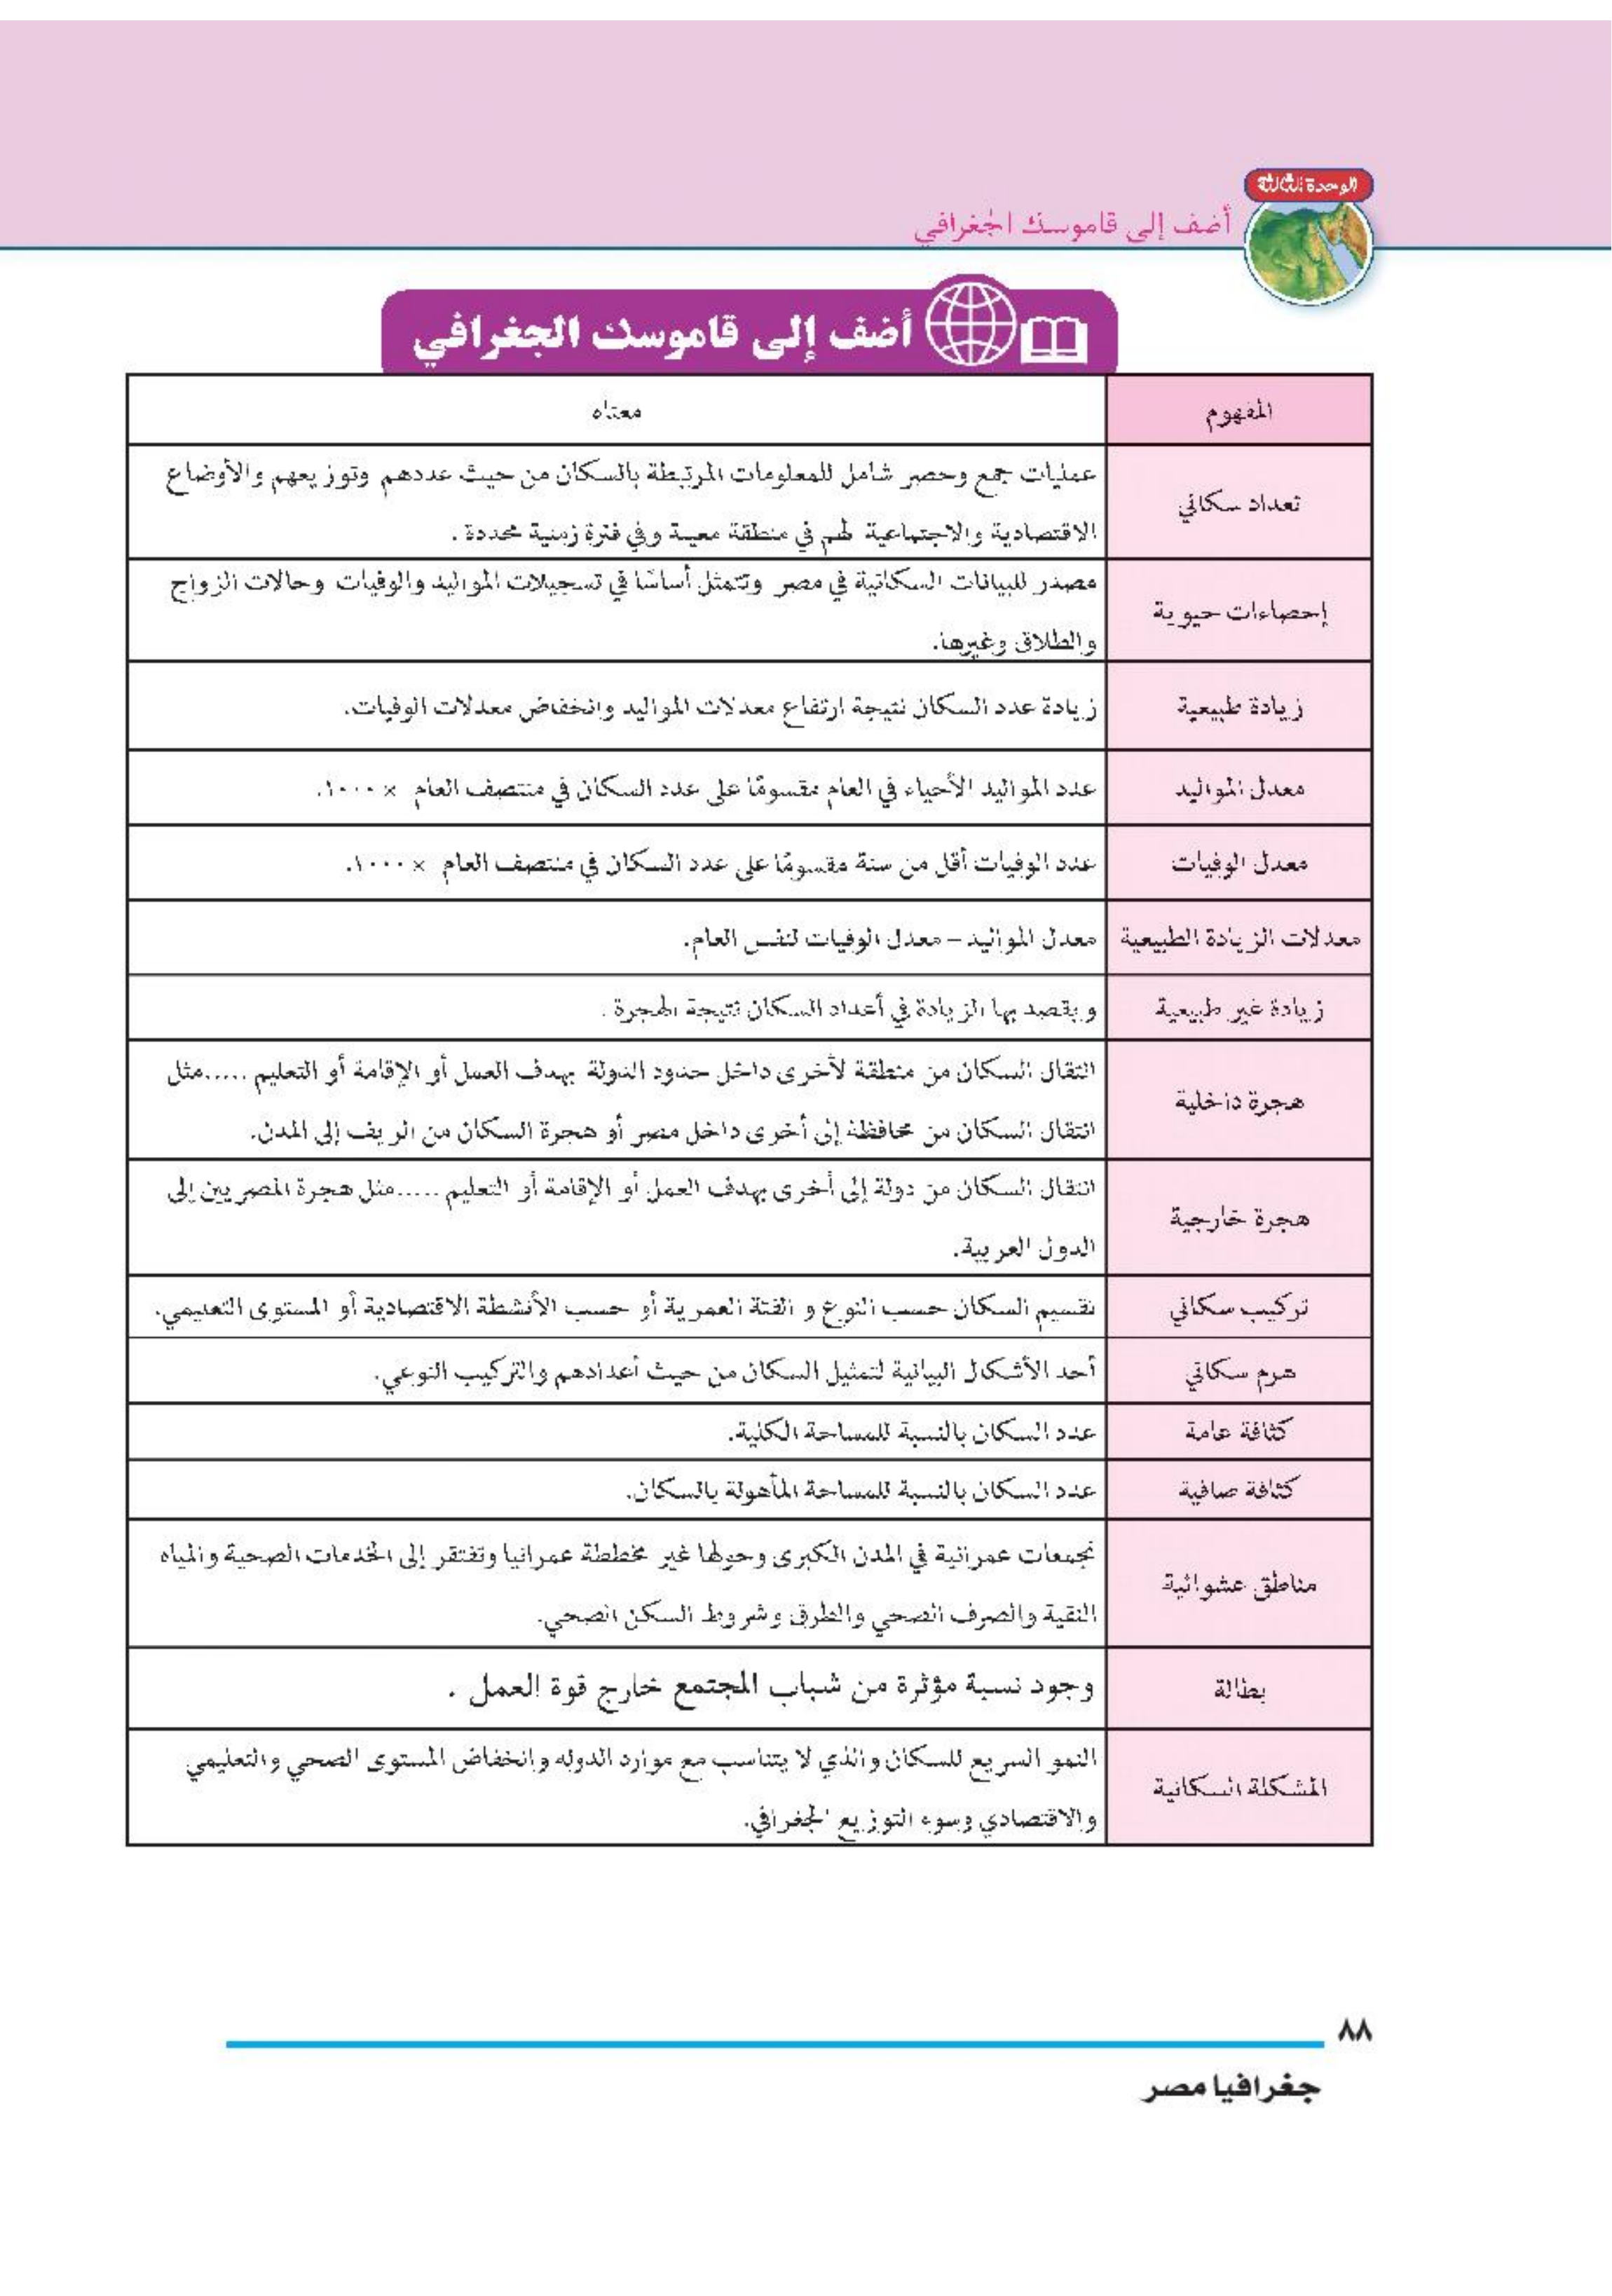 الوحدة الثالثة
أضف إلى قاموسك الجغرافي
أضف إلى قاموسك الجغرافي
المفهوم
معناه
تعداد سكاني
عمليات جمع وحصر شامل للمعلومات المرتبطة بالسكان من حيث عددهم وتوزيعهم والأوضاع
الاقتصادية والاجتماعية لهم في منطقة معينة وفي فترة زمنية محددة .
إحصاءات حيوية
مصدر للبيانات السكانية في مصر وتتمثل أساسًا في تسجيلات المواليد والوفيات وحالات الزواج
والطلاق وغيرها.
زيادة طبيعية
زيادة عدد السكان نتيجة ارتفاع معدلات المواليد وانخفاض معدلات الوفيات.
معدل المواليد
عدد المواليد الأحياء في العام مقسومًا على عدد السكان في منتصف العام × ١٠٠٠.
معدل الوفيات
عدد الوفيات أقل من سنة مقسومًا على عدد السكان في منتصف العام × ١٠٠٠.
معدلات الزيادة الطبيعية
معدل المواليد – معدل الوفيات لنفس العام.
زيادة غير طبيعية
ويقصد بها الزيادة في أعداد السكان نتيجة الهجرة .
هجرة داخلية
انتقال السكان من منطقة لأخرى داخل حدود الدولة بهدف العمل أو الإقامة أو التعليم .....مثل
انتقال السكان من محافظة إلى أخرى داخل مصر أو هجرة السكان من الريف إلى المدن.
هجرة خارجية
انتقال السكان من دولة إلى أخرى بهدف العمل أو الإقامة أو التعليم .....مثل هجرة المصريين إلى
الدول العربية.
تركيب سكاني
تقسيم السكان حسب النوع و الفئة العمرية أو حسب الأنشطة الاقتصادية أو المستوى التعليمي.
هرم سكاني
أحد الأشكال البيانية لتمثيل السكان من حيث أعدادهم والتركيب النوعي.
كثافة عامة
عدد السكان بالنسبة للمساحة الكلية.
كثافة صافية
عدد السكان بالنسبة للمساحة المأهولة بالسكان.
مناطق عشوائية
تجمعات عمرانية في المدن الكبرى وحولها غير مخططة عمرانيا وتفتقر إلى الخدمات الصحية والمياه
النقية والصرف الصحي والطرق وشروط السكن الصحي.
بطالة
وجود نسبة مؤثرة من شباب المجتمع خارج قوة العمل .
المشكلة السكانية
النمو السريع للسكان والذي لا يتناسب مع موارد الدوله وانخفاض المستوى الصحي والتعليمي
والاقتصادي وسوء التوزيع الجغرافي.
٨٨
جغرافيا مصر